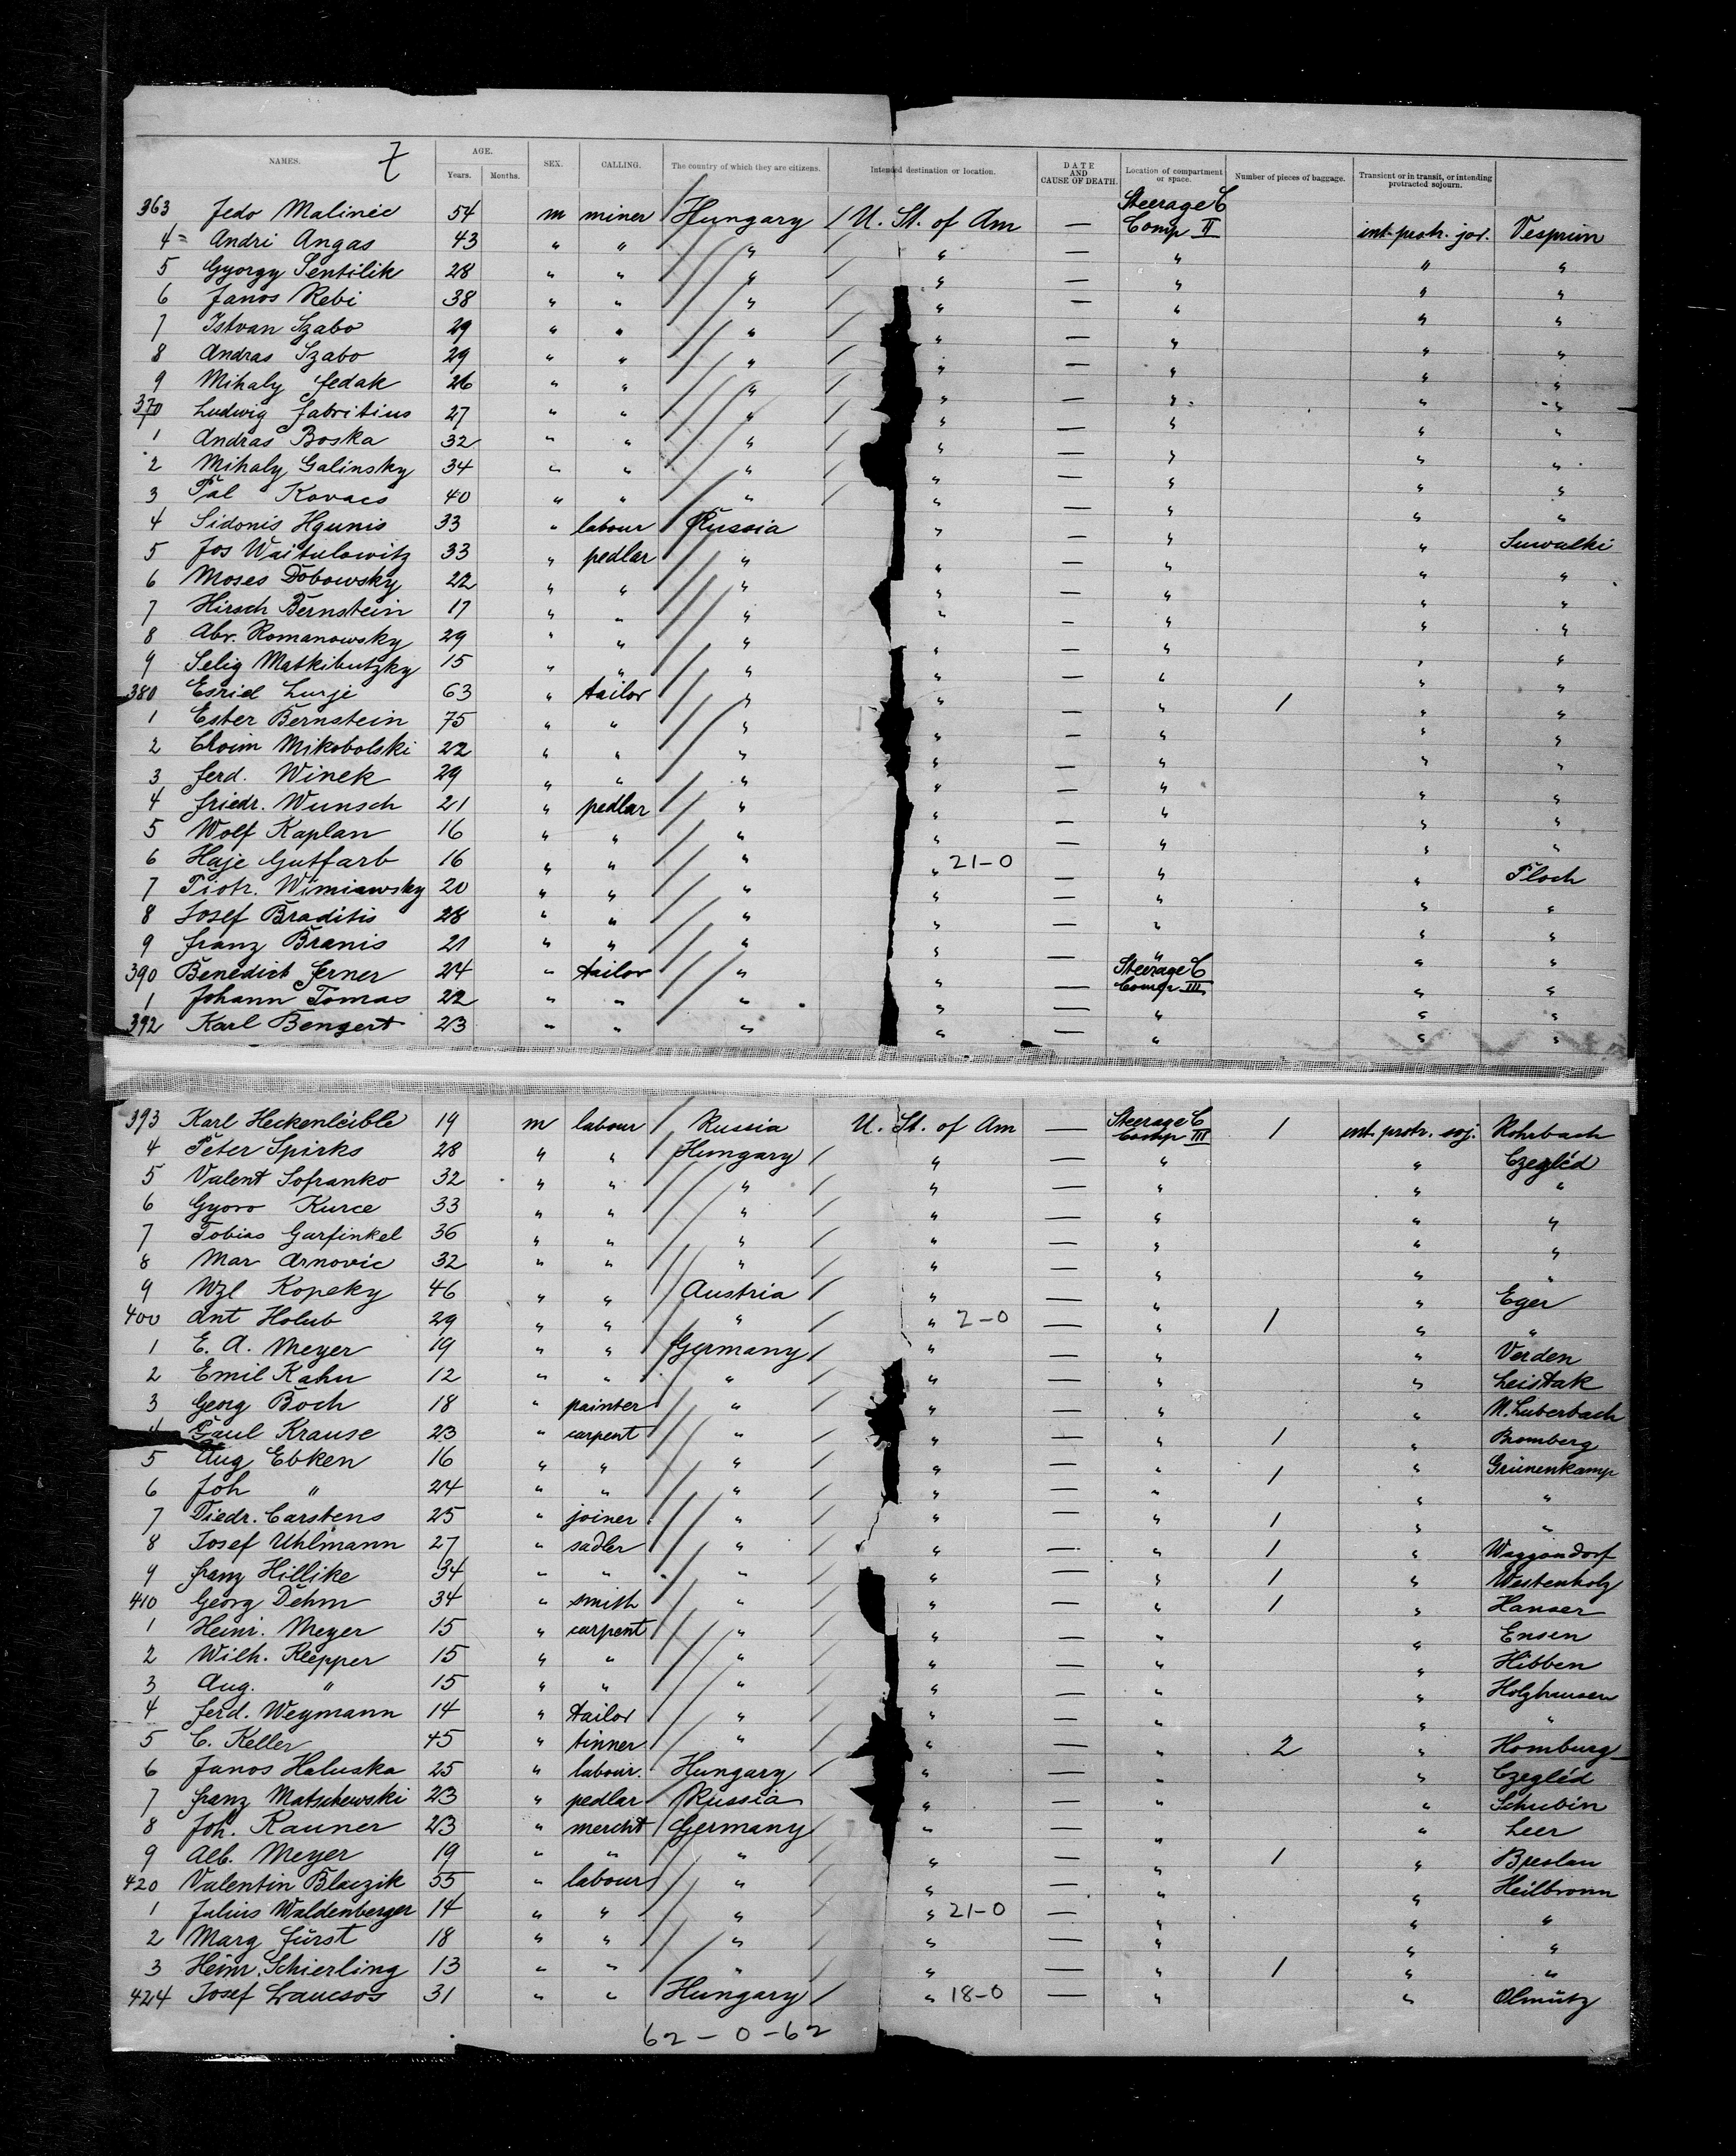 7
NAMES. AGE. SEX. CALLING. The country of which they are citizens. Intended destination or location. DATE AND CAUSE OF DEATH. Location of compartment or space. Number of pieces of baggage. Transient or in transit, or intending protracted sojourn.
Years. Months.
363 Jedo Malinic 54 m miner Hungary U. St. of Am — Steerage C Comp II int. protr. sor. Vesprim
4 Andri Angas 43 " " " " — " " "
5 Gyorgy Sentilik 28 " " " " — " " "
6 Janos Rebi 38 " " " " — " " "
7 Istvan Szabo 29 " " " " — " " "
8 Andras Szabo 29 " " " " — " " "
9 Mihaly Fedak 26 " " " " — " " "
370 Ludwig Fabritius 27 " " " " — " " "
1 Andras Boska 32 " " " " — " " "
2 Mihaly Galinsky 34 " " " " — " " "
3 Pal Kovacs 40 " " " " — " " "
4 Sidonis Hgunis 33 " labour Russia " — " " Suwalki
5 Jos Waitulowitz 33 " pedlar " " — " " "
6 Moses Dobowsky 22 " " " " — " " "
7 Hirsch Bernstein 17 " " " " — " " "
8 Abr. Romanowsky 29 " " " " — " " "
9 Selig Matkibutzky 15 " " " " — " " "
380 Esriel Lurje 63 " tailor " " — " 1 " "
1 Ester Bernstein 75 " " " " — " " "
2 Choim Mikobolski 22 " " " " — " " "
3 Ferd. Winek 29 " " " " — " " "
4 Friedr. Wunsch 21 " pedlar " " — " " "
5 Wolf Kaplan 16 " " " " — " " "
6 Haje Gutfarb 16 " " " " 21-0 — " " Plock
7 Piotr. Wimiawsky 20 " " " " — " " "
8 Josef Braditis 28 " " " " — " " "
9 Franz Branis 21 " " " " — " " "
390 Benedict Ferner 24 " tailor " " — Steerage C Comp III " "
1 Johann Tomas 22 " " " " — " " "
392 Karl Bengert 23 " " " " — " " "
393 Karl Heckenleible 19 m labour Russia U. St. of Am — Steerage C Comp III 1 int. protr. soj. Rohrbach
4 Peter Spirks 28 " " Hungary " — " " Czegléd
5 Valent Sofranko 32 " " " " — " " "
6 Gyoro Kurce 33 " " " " — " " "
7 Tobias Garfinkel 36 " " " " — " " "
8 Mar Arnovic 32 " " " " — " " "
9 Wzl Kopeky 46 " " Austria " — " " Eger
400 Ant Holub 29 " " " " 2-0 — " 1 " "
1 E. A. Meyer 19 " " Germany " — " " Verden
2 Emil Kahn 12 " " " " — " " Leistak
3 Georg Boch 18 " painter " " — " " N. Luberbach
4 Paul Krause 23 " carpent " " — " 1 " Bromberg
5 Aug Ebken 16 " " " " — " 1 " Grünenkamp
6 Joh " 24 " " " " — " " "
7 Diedr. Carstens 25 " joiner " " — " 1 " "
8 Josef Uhlmann 27 " sadler " " — " 1 " Waggondorf
9 Franz Hillike 34 " " " " — " 1 " Westenholz
410 Georg Dehm 34 " smith " " — " 1 " Hanser
1 Heinr. Meyer 15 " carpent " " — " " Ensen
2 Wilh. Klepper 15 " " " " — " " Hibben
3 Aug. " 15 " " " " — " " Holzhausen
4 Ferd. Weymann 14 " tailor " " — " " "
5 C. Keller 45 " tinner " " — " 2 " Homburg
6 Janos Haluska 25 " labour. Hungary " — " " Czegléd
7 Franz Matschewski 23 " pedlar Russia " — " " Schubin
8 Joh. Rauner 23 " mercht Germany " — " " Leer
9 Alb. Meyer 19 " " " " — " 1 " Breslau
420 Valentin Blaczik 55 " labour " " — " " Heilbronn
1 Julius Waldenberger 14 " " " " 21-0 — " " "
2 Marg Fürst 18 " " " " — " " "
3 Heinr. Schierling 13 " " " " — " 1 " "
424 Josef Laucsos 31 " " Hungary " 18-0 — " " Olmütz
62 - 0 - 62